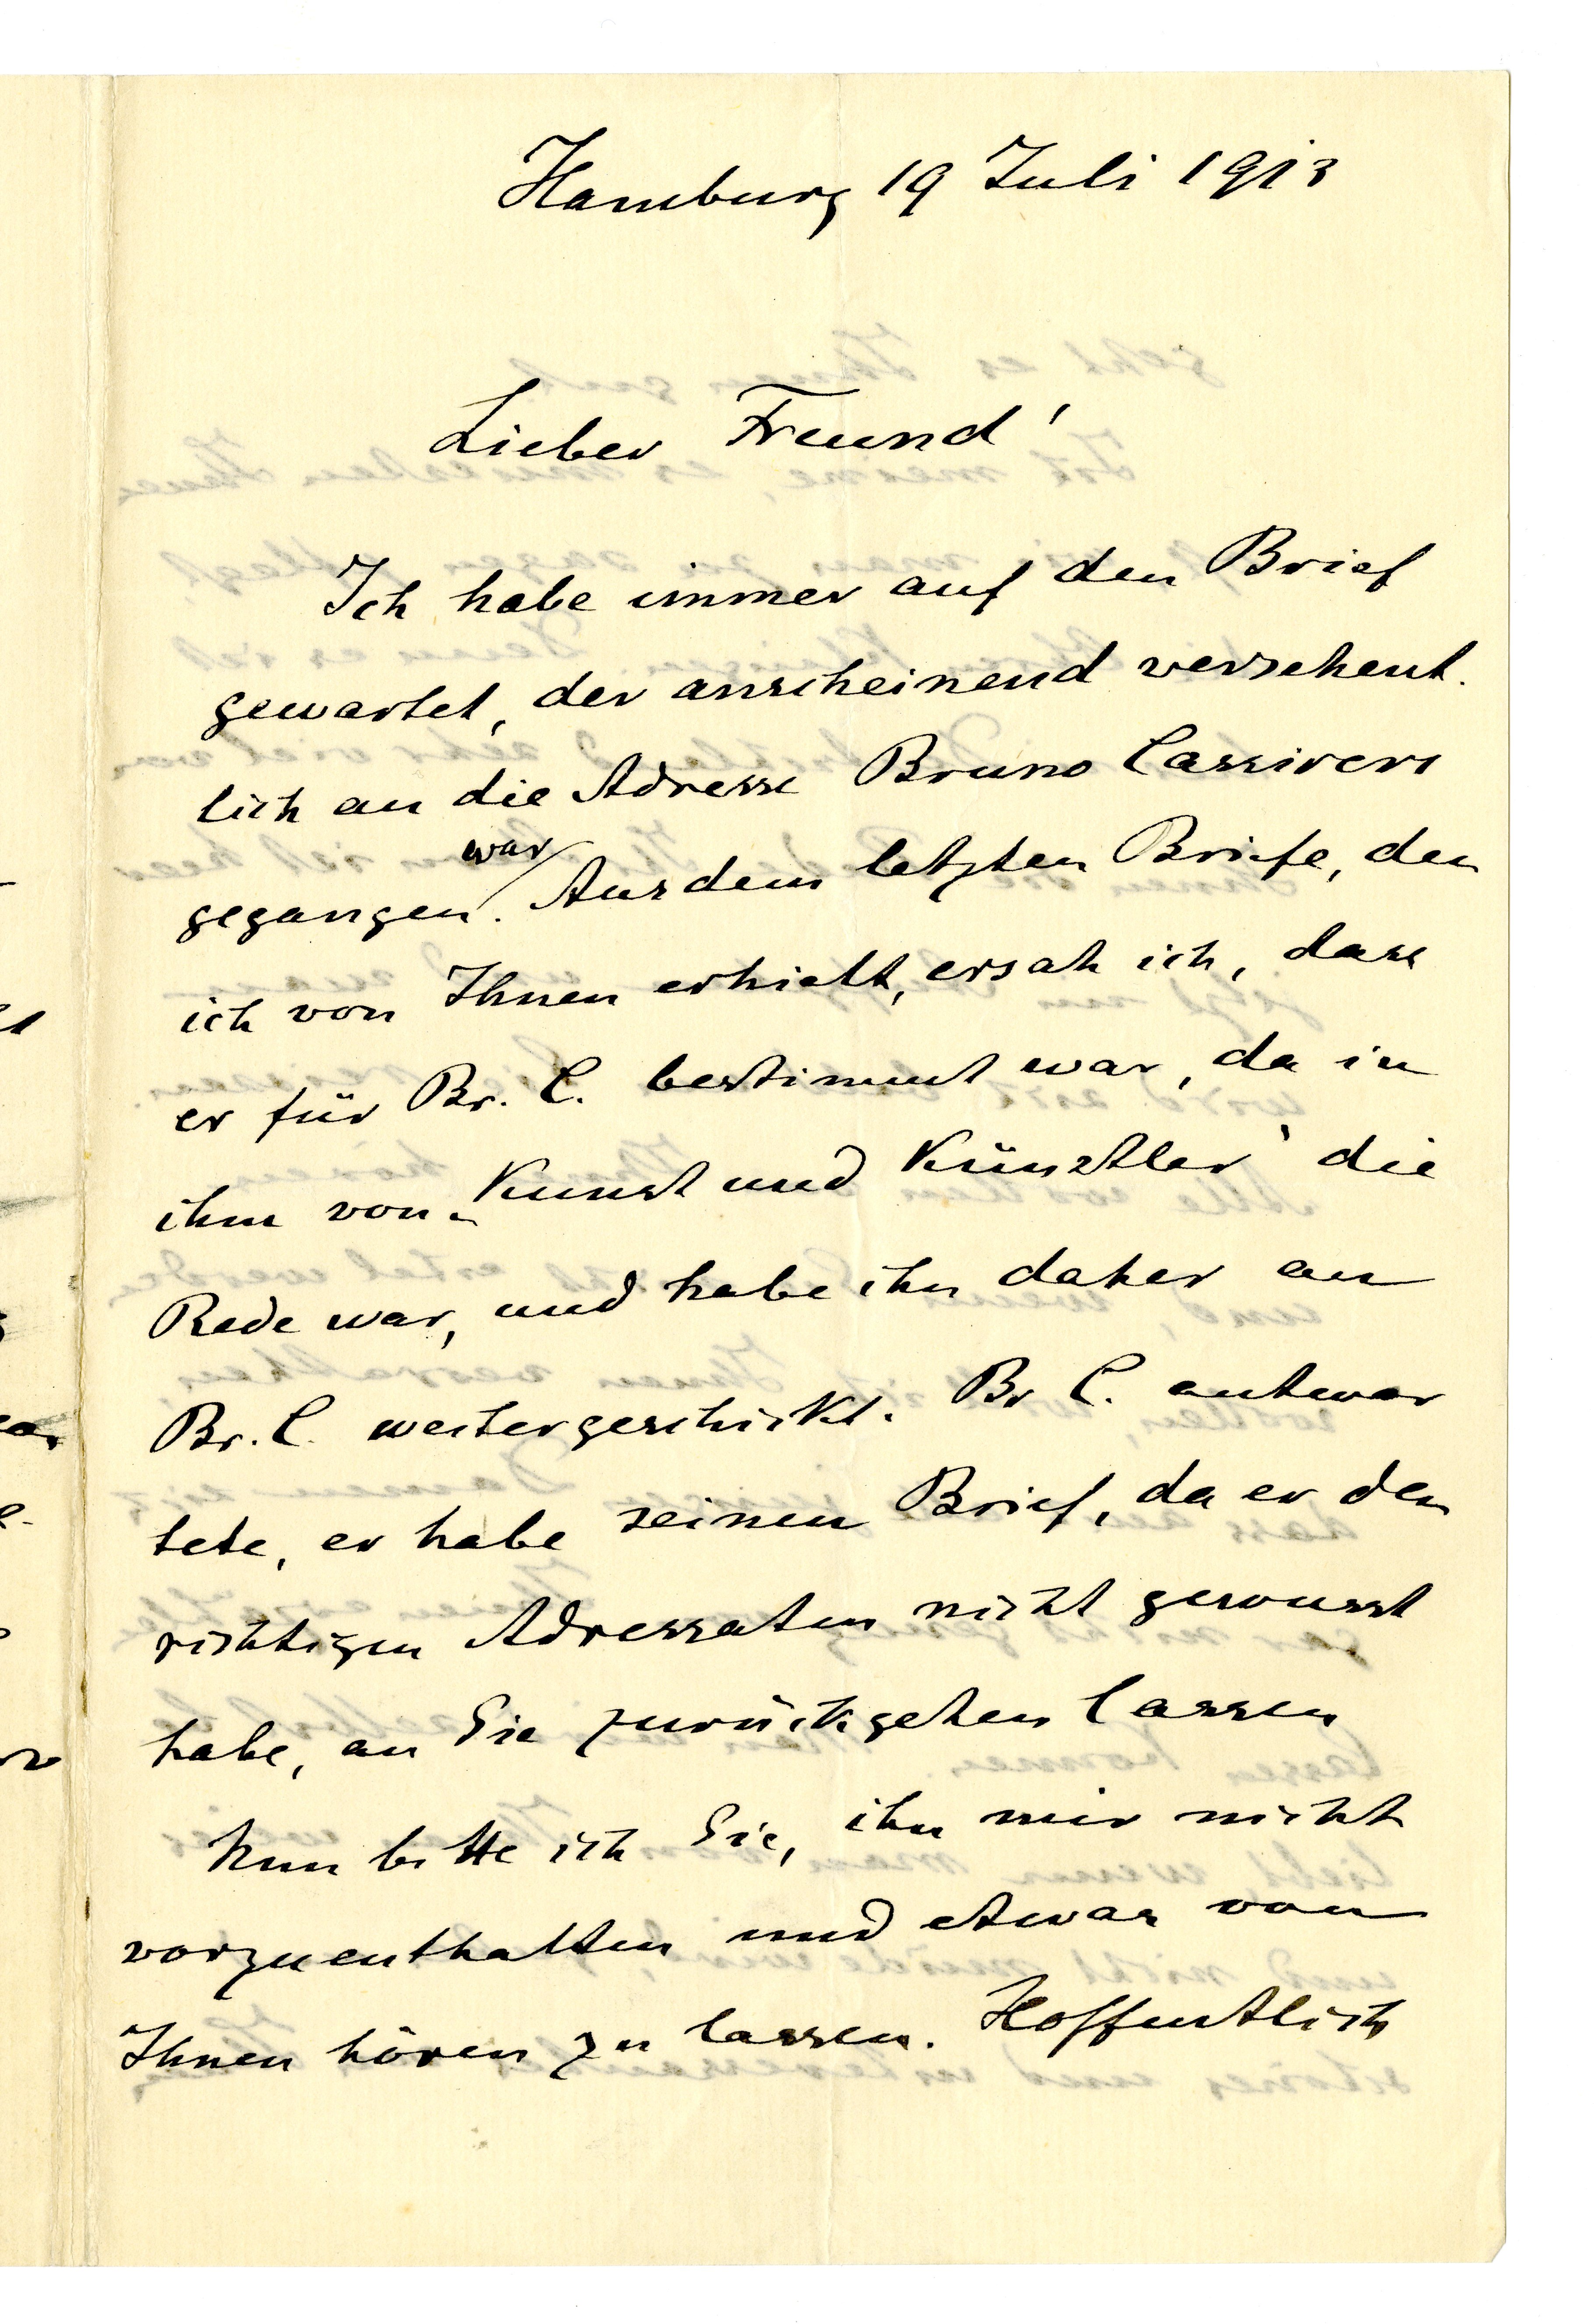 Hamburg 19 Juli 1913
Lieber Freund!
Ich habe immer auf den Brief
gewartet, der anscheinend versehent-
lich an die Adresse Bruno Cassirers
war
gegangen. Aus dem letzten Briefe, den
ich von Ihnen erhielt, ersah ich, dass
er für Br. C. bestimmt war, da in
ihm von „Kunst und Künstler" die
Rede war, und habe ihn daher an
Br. C. weitergeschickt. Br C. antwor
tete, er habe seinen Brief, da er den
richtigen Adressaten nicht gewusst
habe, an Sie zurückgehen lassen
Nun bitte ich Sie, ihn mir nicht
vorzuenthalten und etwas von
Ihnen hören zu lassen. Hoffentlich